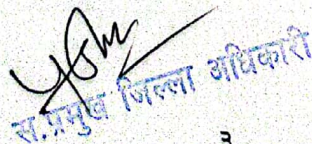 स.प्रमुख जिल्ला अधिकारी
३